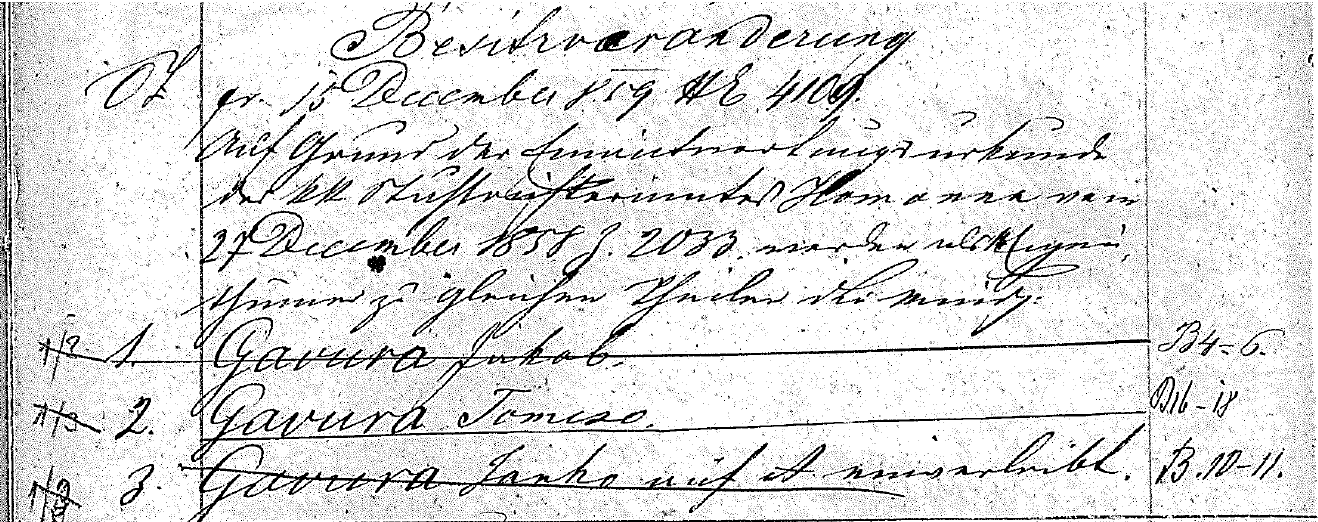 Besitzveränderung
pr. 15 December 859 HE 4109.
Auf Grund der Einantwortungsurkunde
des kk Stuhlrichteramtes Homonna vom
27 December 1858 Z. 2033. werden als Eigen-
thümer zu gleichen Theilen die minderj:
1/3 1. Gavura Jakob. B4-6.
1/3 2. Gavura Tomeso. B16-18
1/3 3. Gavura Janko auf A einverleibt. B.10-11.